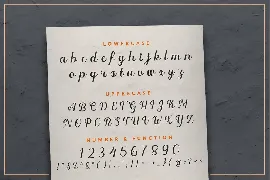 LOWERCASE
a b c d e f g h i j k l m n
o p q r s t u v w x y z
UPPERCASE
A B C D E F G H I J K L M
N O P Q R S T U V W X Y Z
NUMBER & FUNCTION